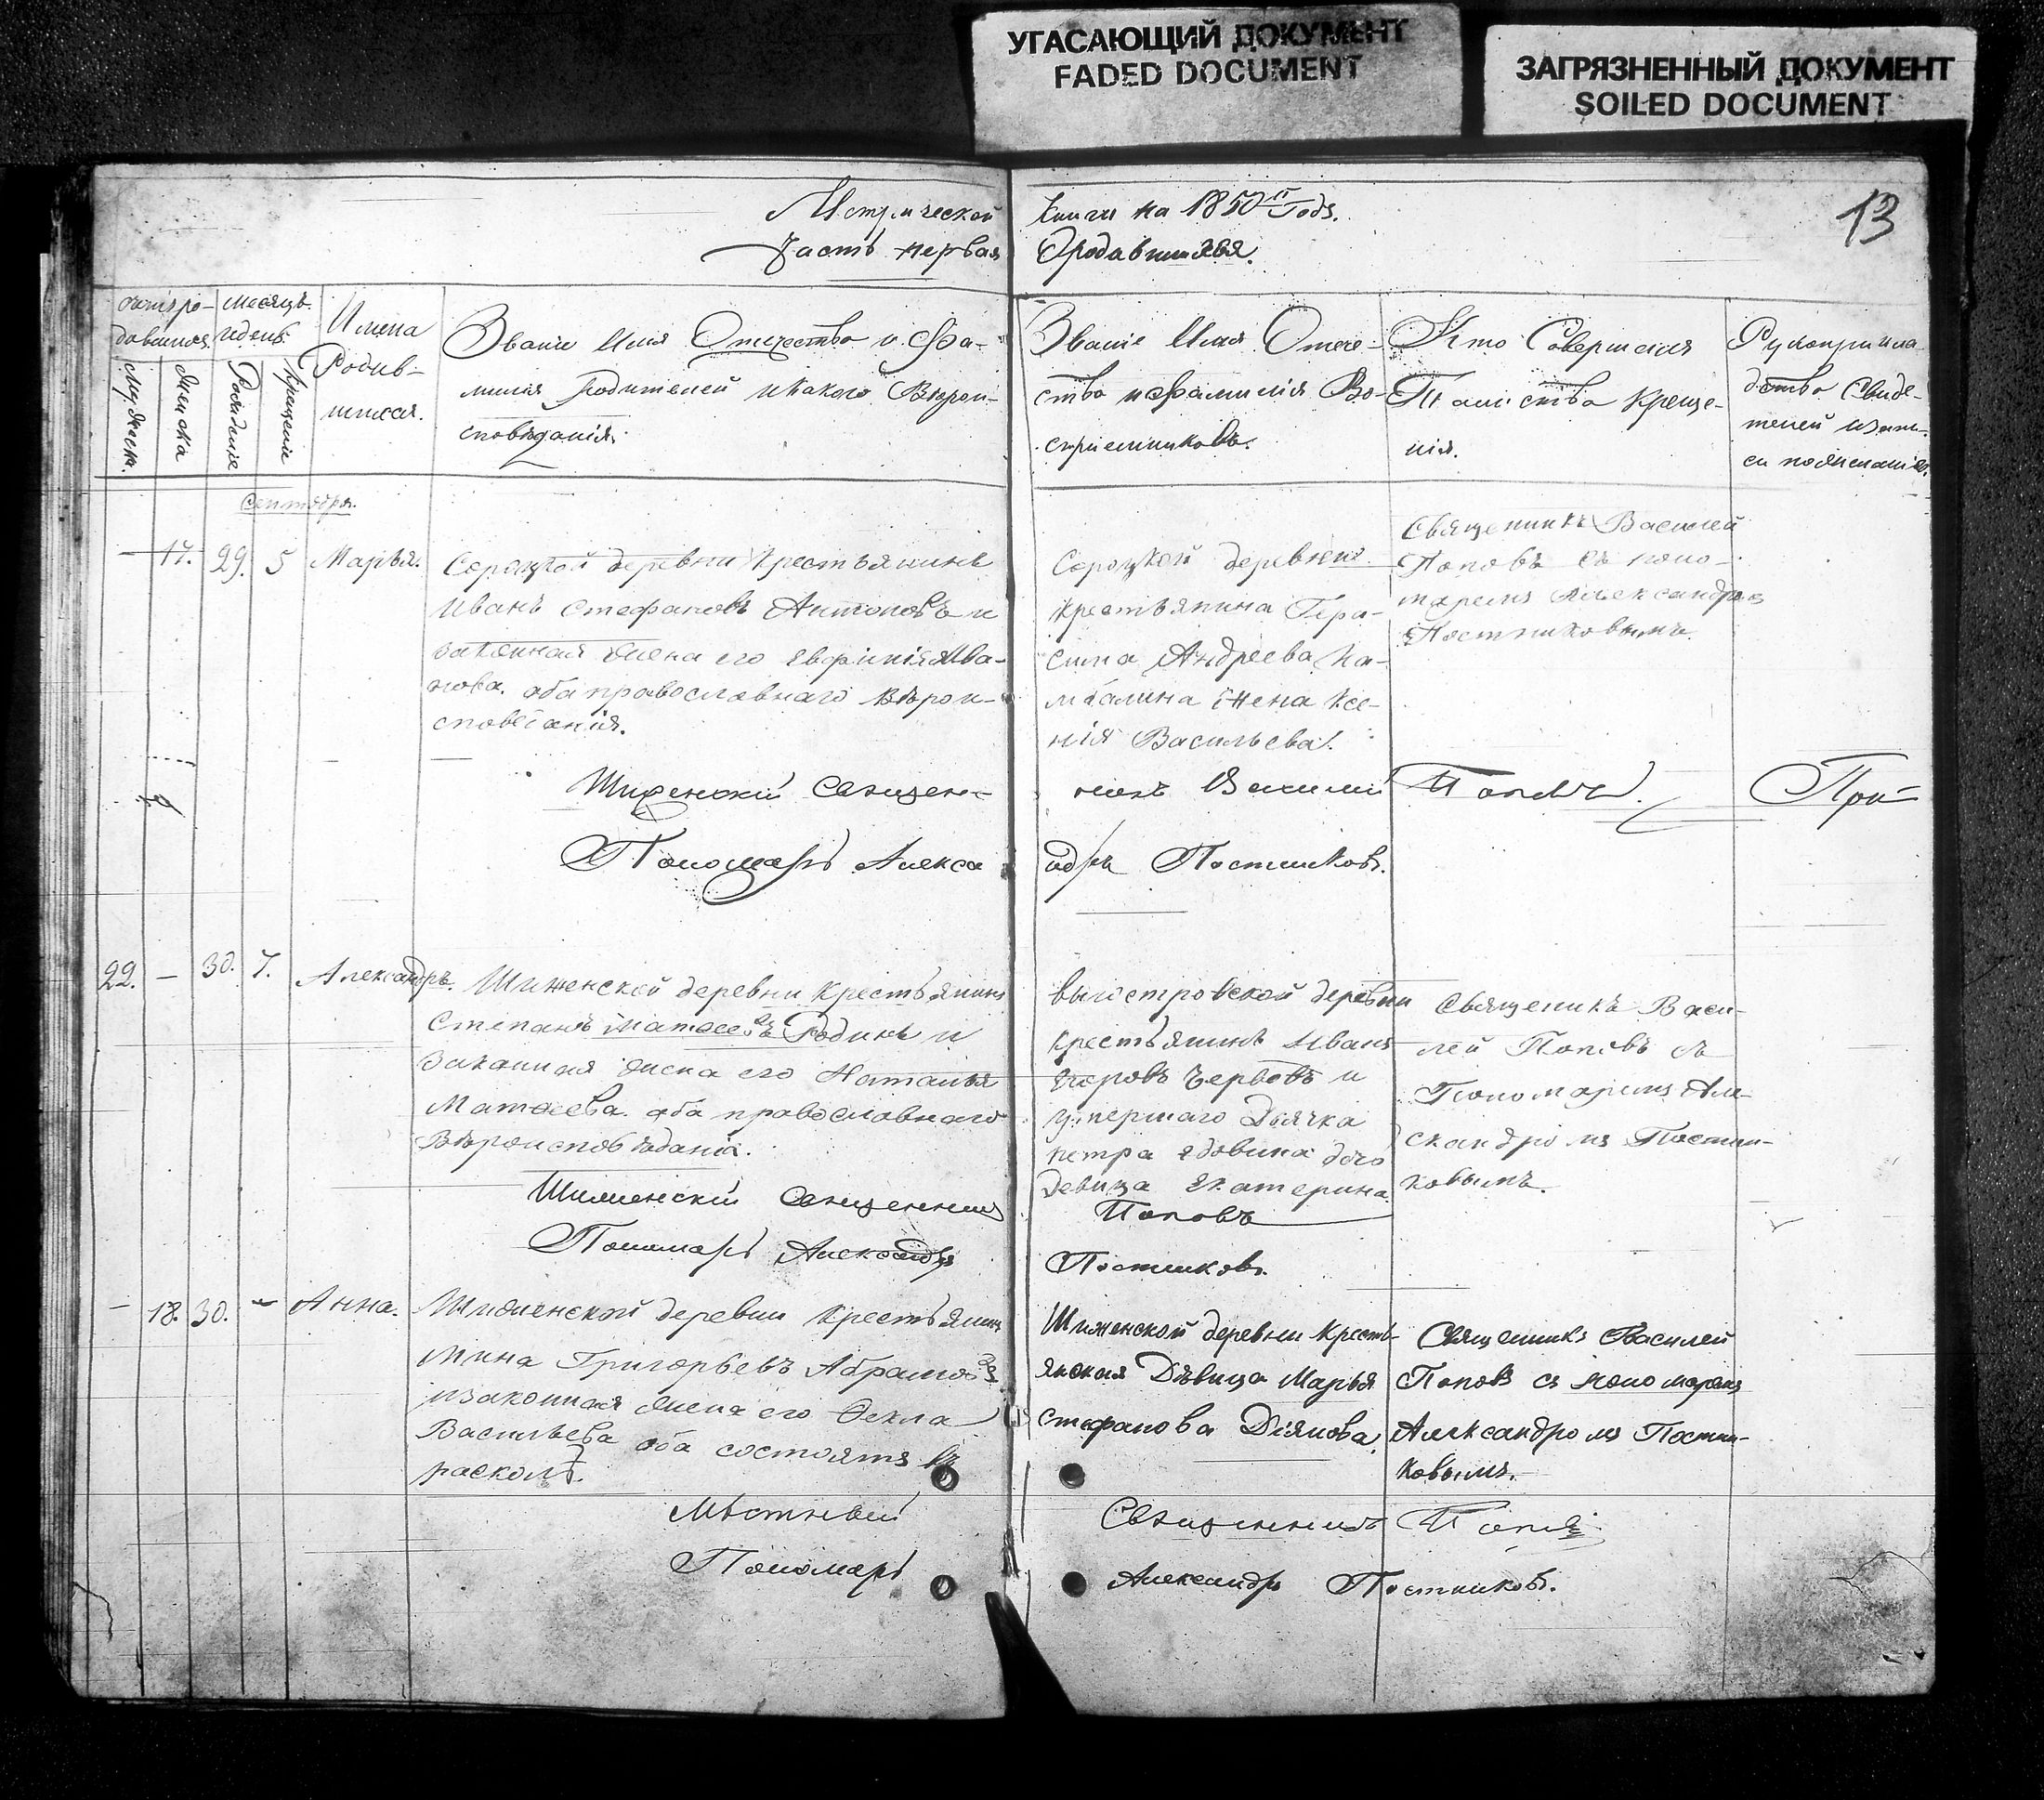 УГАСАЮЩИЙ ДОКУМЕНТ
FADED DOCUMENT
ЗАГРЯЗНЕННЫЙ ДОКУМЕНТ
SOILED DOCUMENT
13
Метрической
Книги на 1850й Годъ.
Часть первая
О родившихся.
Месяцъ
и день.
Мужеск.
Женска
Рождение
Крещение
Имена
Родив-
шихся.
Звание Имя Отечество и Фа-
милия Родителей и Какого Вѣрои-
споведания.
Звание Имя Отече-
ство и Фамилия Во-
сприемниковъ.
Кто Совершилъ
Таинство Креще-
ния.
Рукоприкла-
дство Свиде-
телей
Сентября.
17. 29. 5 Марья.
Сороцкой деревни Крестьянинъ
Иванъ Стефановъ Антоновъ и
законная жена его Ива-
нова. оба православного Вѣрои-
споведания.
Сороцкой деревни
крестьянина Гера-
сима Андреева Ка-
мбалина Жена Ксе-
ния Васильева.
Священникъ Василей
Поповъ съ поно-
маремъ Александромъ
Постниковымъ.
Шиженский Священ-
никъ Василий Поповъ.
При-
Пономарь Алекса
ндръ Постниковъ.
22. — 30. 7. Александръ.
Шиженской деревни Крестьянинъ
Степанъ Матѳеевъ Родинъ и
законная жена его Наталья
Матѳеева. оба православного
Вѣроисповѣдания.
Выгостровской деревни
крестьянинъ Иванъ
Егоровъ и
умершаго Дьячка
петра
девица Екатерина
Священникъ Васи-
лей Поповъ съ
Пономаремъ Але-
ксандромъ Постни-
ковымъ.
Шиженский Священникъ
Поповъ
Пономарь Александръ
Постниковъ.
— 18. 30. — Анна.
Шиженской деревни Крестьянинъ
Мина Григорьевъ Абрамовъ
и законная жена его Ѳекла
Васильева оба состоятъ въ
расколѣ.
Шиженской деревни Кресть-
янская Дѣвица Марья
Стефанова Діякова.
Священникъ Василей
Поповъ съ пономаремъ
Александромъ Постни-
ковымъ.
Мѣстный
Священникъ Поповъ
Пономарь
Александръ Постниковъ.